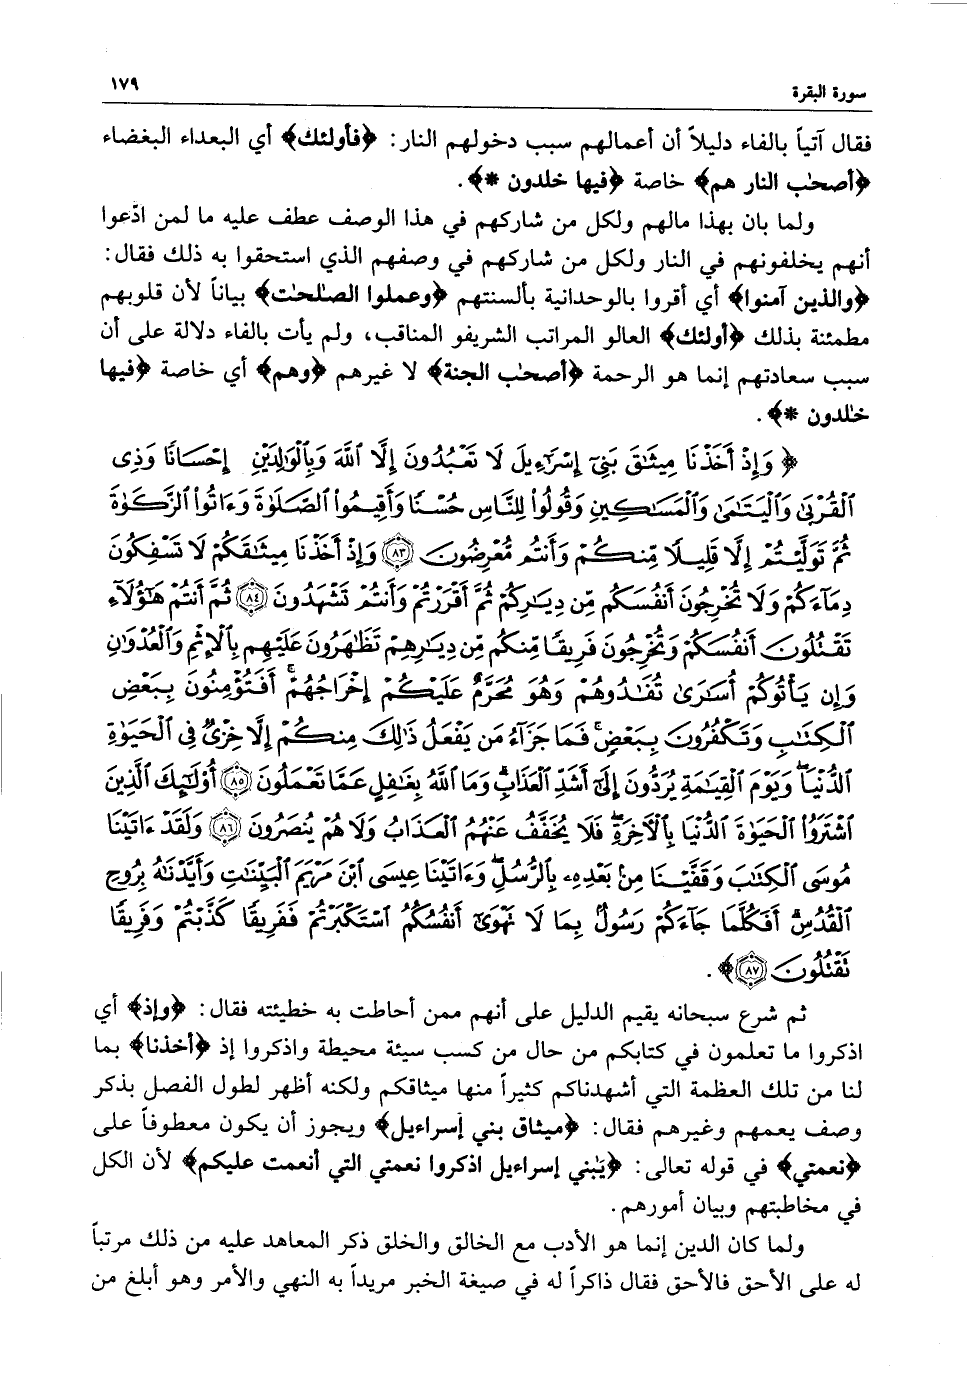 سورة البقرة ١٧٩
فقال آتياً بالفاء دليلاً أن أعمالهم سبب دخولهم النار: ﴿فأولئك﴾ أي البعداء البغضاء
﴿أصحٰب النار هم﴾ خاصة ﴿فيها خلدون *﴾.
ولما بان بهذا مالهم ولكل من شاركهم في هذا الوصف عطف عليه ما لمن ادّعوا
أنهم يخلفونهم في النار ولكل من شاركهم في وصفهم الذي استحقوا به ذلك فقال:
﴿والذين آمنوا﴾ أي أقروا بالوحدانية بألسنتهم ﴿وعملوا الصٰلحٰت﴾ بياناً لأن قلوبهم
مطمئنة بذلك ﴿أولئك﴾ العالو المراتب الشريفو المناقب، ولم يأت بالفاء دلالة على أن
سبب سعادتهم إنما هو الرحمة ﴿أصحٰب الجنة﴾ لا غيرهم ﴿وهم﴾ أي خاصة ﴿فيها
خٰلدون *﴾.
﴿وَإِذْ أَخَذْنَا مِيثَٰقَ بَنِيٓ إِسْرَٰٓءِيلَ لَا تَعْبُدُونَ إِلَّا ٱللَّهَ وَبِٱلْوَٰلِدَيْنِ إِحْسَانًا وَذِى
ٱلْقُرْبَىٰ وَٱلْيَتَٰمَىٰ وَٱلْمَسَٰكِينِ وَقُولُوا۟ لِلنَّاسِ حُسْنًا وَأَقِيمُوا۟ ٱلصَّلَوٰةَ وَءَاتُوا۟ ٱلزَّكَوٰةَ
ثُمَّ تَوَلَّيْتُمْ إِلَّا قَلِيلًا مِّنكُمْ وَأَنتُم مُّعْرِضُونَ ﴿٨٣﴾ وَإِذْ أَخَذْنَا مِيثَٰقَكُمْ لَا تَسْفِكُونَ
دِمَآءَكُمْ وَلَا تُخْرِجُونَ أَنفُسَكُم مِّن دِيَٰرِكُمْ ثُمَّ أَقْرَرْتُمْ وَأَنتُمْ تَشْهَدُونَ ﴿٨٤﴾ ثُمَّ أَنتُمْ هَٰٓؤُلَآءِ
تَقْتُلُونَ أَنفُسَكُمْ وَتُخْرِجُونَ فَرِيقًا مِّنكُم مِّن دِيَٰرِهِمْ تَظَٰهَرُونَ عَلَيْهِم بِٱلْإِثْمِ وَٱلْعُدْوَٰنِ
وَإِن يَأْتُوكُمْ أُسَٰرَىٰ تُفَٰدُوهُمْ وَهُوَ مُحَرَّمٌ عَلَيْكُمْ إِخْرَاجُهُمْ ۚ أَفَتُؤْمِنُونَ بِبَعْضِ
ٱلْكِتَٰبِ وَتَكْفُرُونَ بِبَعْضٍ ۚ فَمَا جَزَآءُ مَن يَفْعَلُ ذَٰلِكَ مِنكُمْ إِلَّا خِزْىٌ فِى ٱلْحَيَوٰةِ
ٱلدُّنْيَا ۖ وَيَوْمَ ٱلْقِيَٰمَةِ يُرَدُّونَ إِلَىٰٓ أَشَدِّ ٱلْعَذَابِ ۗ وَمَا ٱللَّهُ بِغَٰفِلٍ عَمَّا تَعْمَلُونَ ﴿٨٥﴾ أُو۟لَٰٓئِكَ ٱلَّذِينَ
ٱشْتَرَوُا۟ ٱلْحَيَوٰةَ ٱلدُّنْيَا بِٱلْءَاخِرَةِ ۖ فَلَا يُخَفَّفُ عَنْهُمُ ٱلْعَذَابُ وَلَا هُمْ يُنصَرُونَ ﴿٨٦﴾ وَلَقَدْ ءَاتَيْنَا
مُوسَى ٱلْكِتَٰبَ وَقَفَّيْنَا مِنۢ بَعْدِهِۦ بِٱلرُّسُلِ ۖ وَءَاتَيْنَا عِيسَى ٱبْنَ مَرْيَمَ ٱلْبَيِّنَٰتِ وَأَيَّدْنَٰهُ بِرُوحِ
ٱلْقُدُسِ ۗ أَفَكُلَّمَا جَآءَكُمْ رَسُولٌۢ بِمَا لَا تَهْوَىٰٓ أَنفُسُكُمُ ٱسْتَكْبَرْتُمْ فَفَرِيقًا كَذَّبْتُمْ وَفَرِيقًا
تَقْتُلُونَ ﴿٨٧﴾﴾.
ثم شرع سبحانه يقيم الدليل على أنهم ممن أحاطت به خطيئته فقال: ﴿وإذ﴾ أي
اذكروا ما تعلمون في كتابكم من حال من كسب سيئة محيطة واذكروا إذ ﴿أخذنا﴾ بما
لنا من تلك العظمة التي أشهدناكم كثيراً منها ميثاقكم ولكنه أظهر لطول الفصل بذكر
وصف يعمهم وغيرهم فقال: ﴿ميثاق بني إسراءيل﴾ ويجوز أن يكون معطوفاً على
﴿نعمتي﴾ في قوله تعالى: ﴿يٰبني إسراءيل اذكروا نعمتي التي أنعمت عليكم﴾ لأن الكل
في مخاطبتهم وبيان أمورهم.
ولما كان الدين إنما هو الأدب مع الخالق والخلق ذكر المعاهد عليه من ذلك مرتباً
له على الأحق فالأحق فقال ذاكراً له في صيغة الخبر مريداً به النهي والأمر وهو أبلغ من